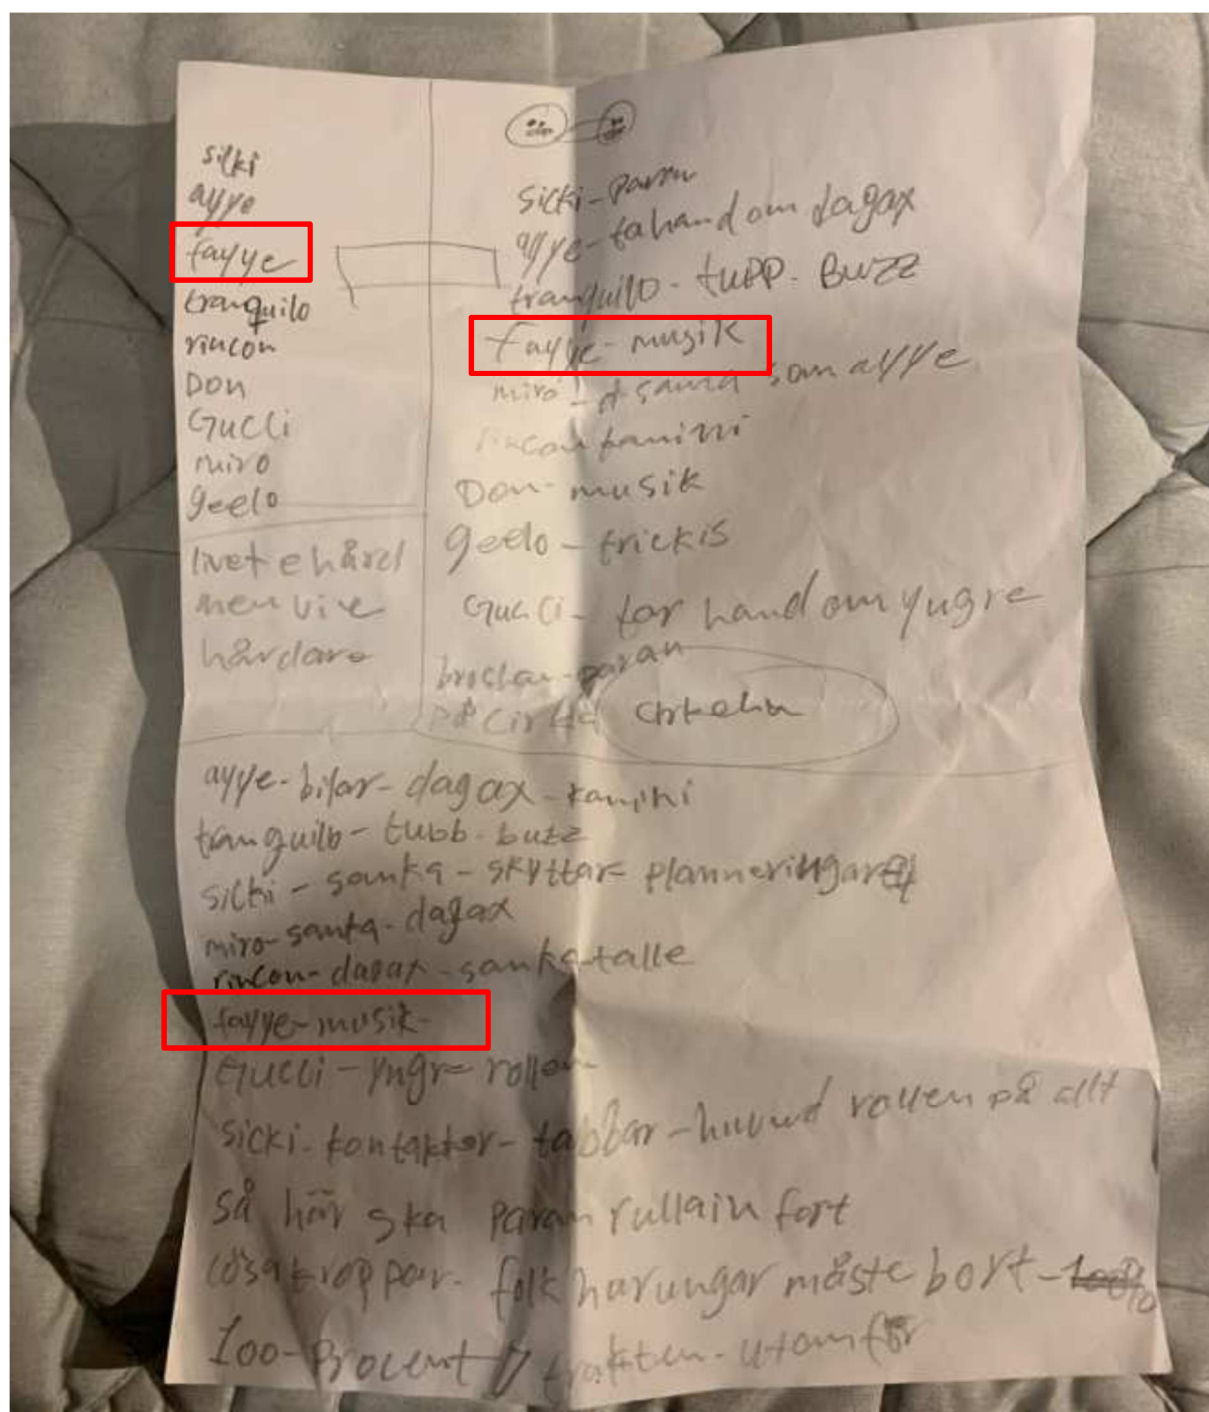 silki
ayye
fayye
tranquilo
rincon
Don
Gucci
miro
geelo
livet e hård
men vi e
hårdare
silki-paran
ayye-tahand om dagax
tranquilo-tupp. Buzz
Fayye-musik
miro- samma som ayye
rincon kanini
Don-musik
geelo-trickis
Gucci- tar hand om yngre
på cirkel cirkeln
ayye-bilar-dagax-kanini
tranquilo-tubb-buzz
silki-sanka-skyttar-planneringar
miro-sanka-dagax
rincon-dagax-sanka-talle
fayye-musik-
Gucci-yngre rollen
sicki-kontakter-tabbar-huvud rollen på allt
så här ska paran rulla in fort
lösa kroppar. folk har ungar måste bort-100%
100-procent trakten-utanför